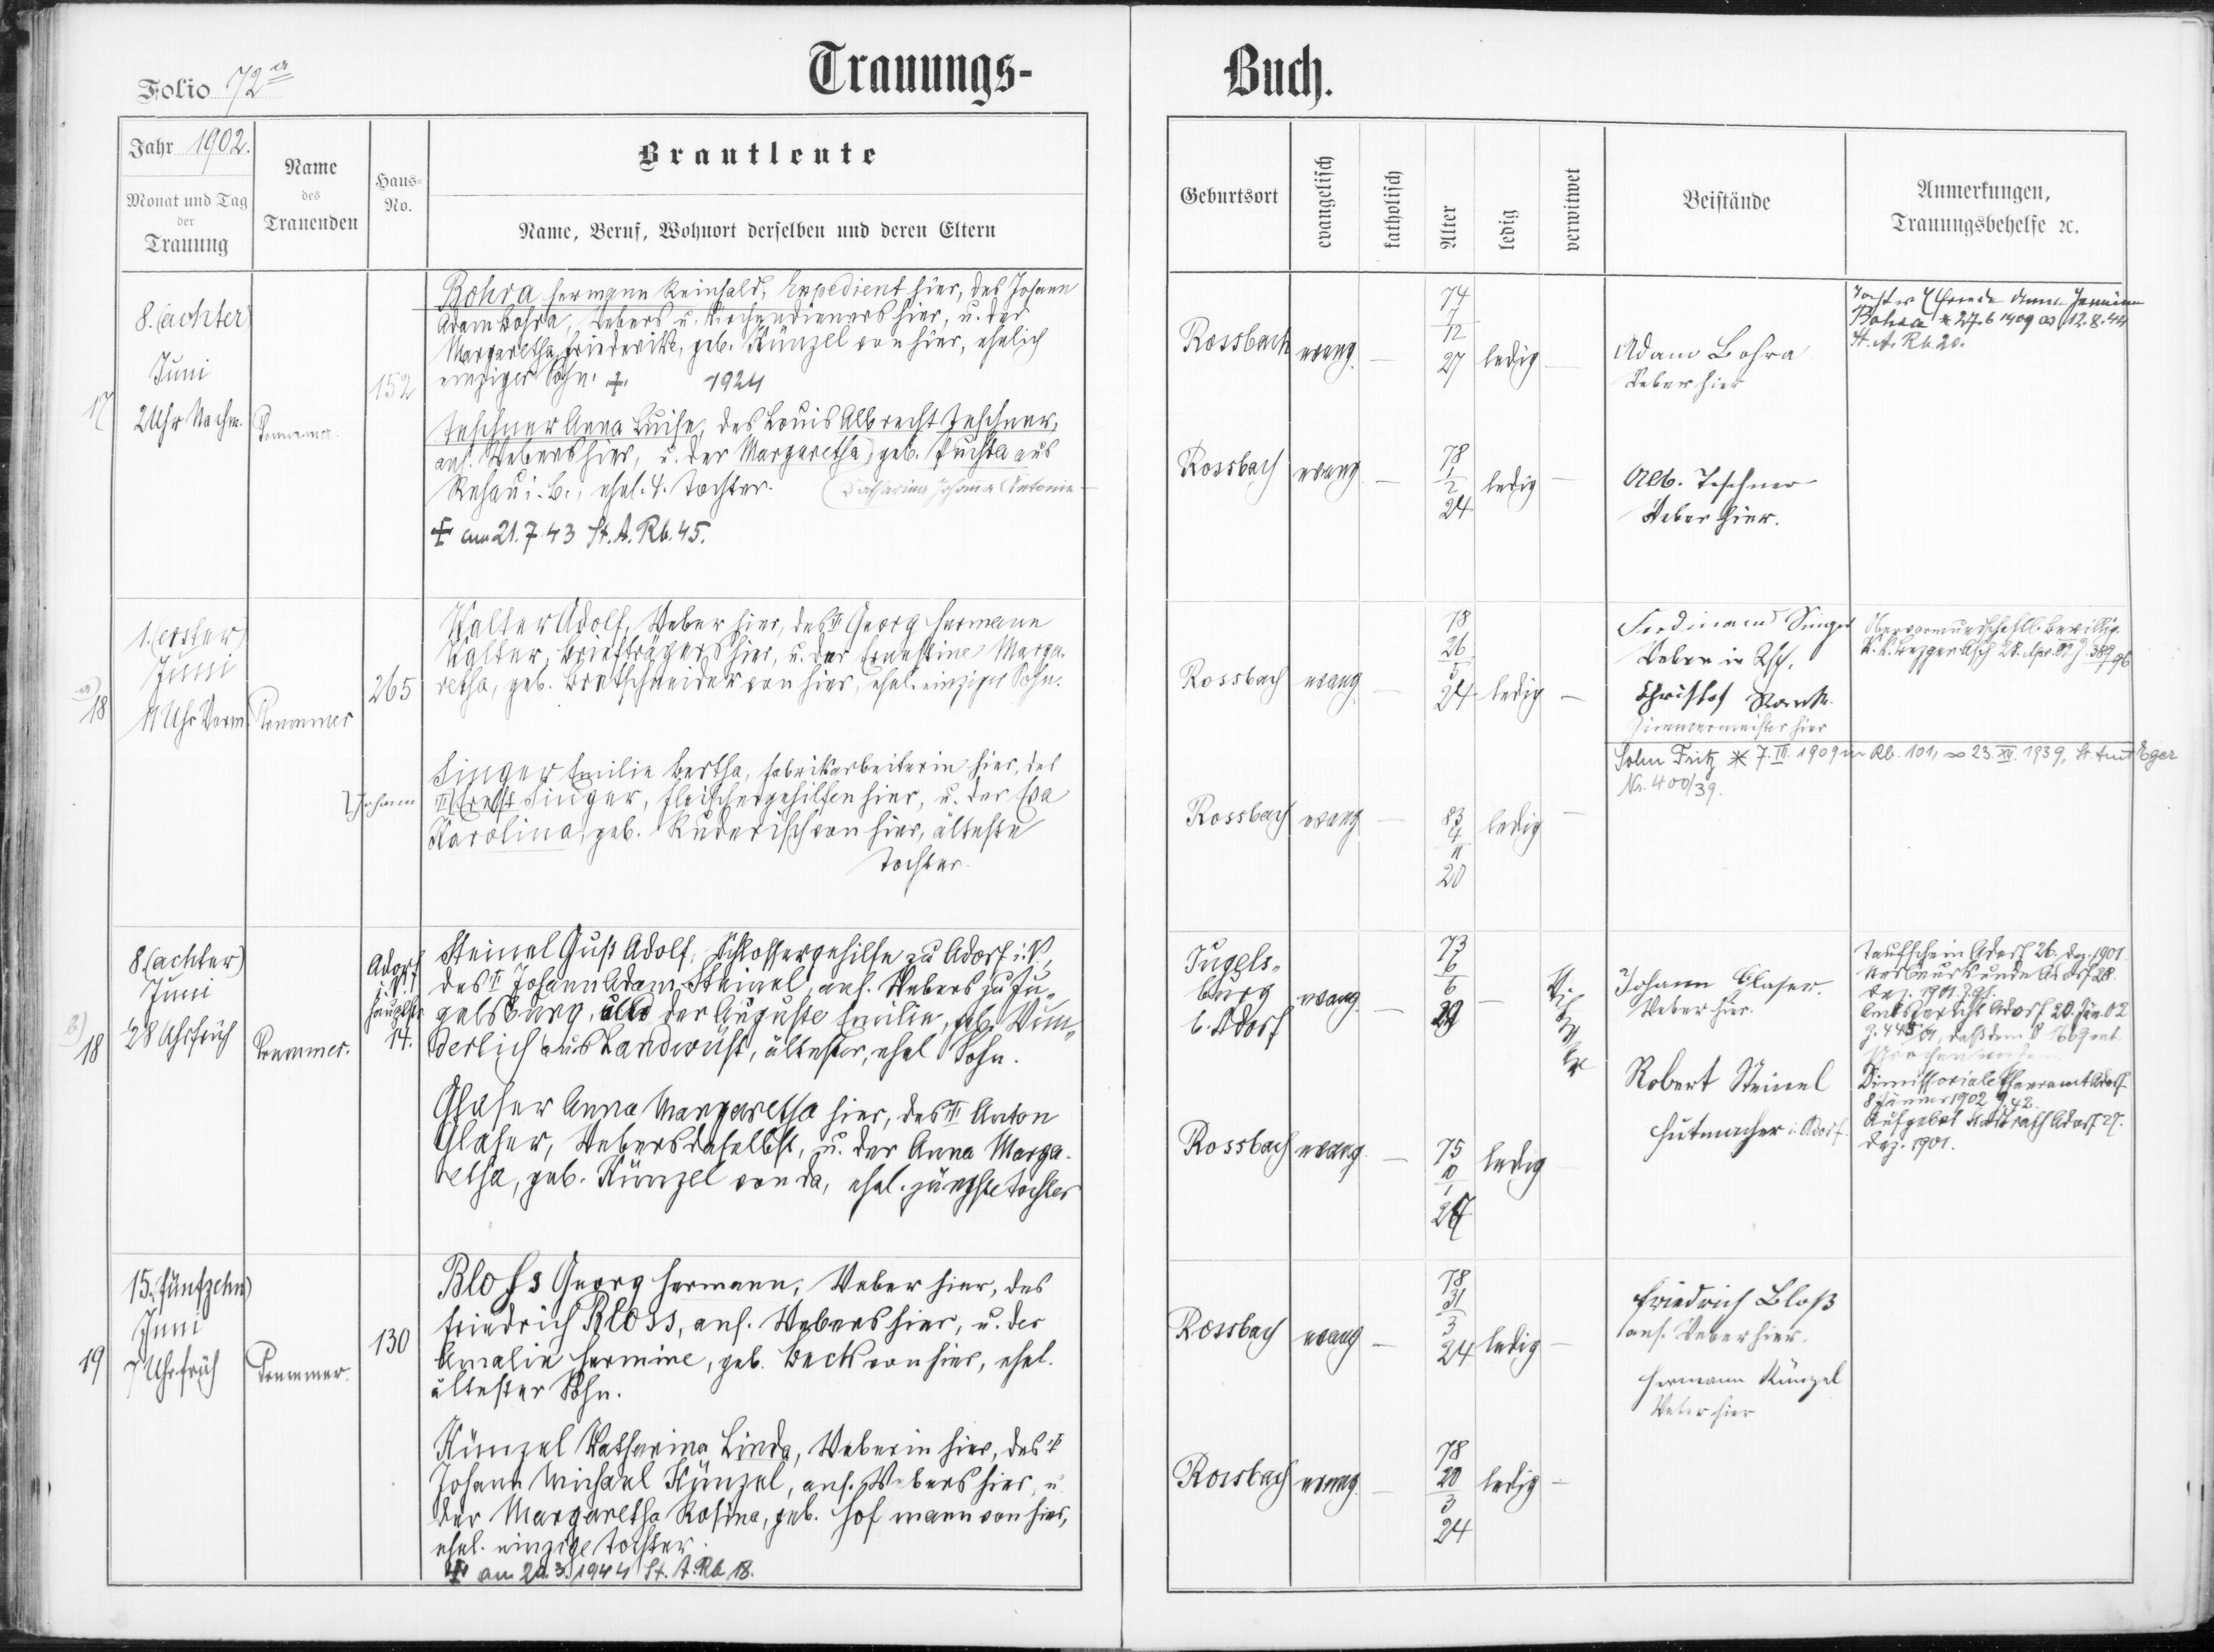 Trauungs-
Buch.
Folio 72a
Jahr 1902.
Monat und Tag
der
Trauung
Name
des
Trauenden
Haus-
No.
Brautleute
Name, Beruf, Wohnort derselben und deren Eltern
Geburtsort
evangelisch
katholisch
Alter
ledig
verwitwet
Beistände
Anmerkungen,
Trauungsbehelfe ꝛc.
17
8. (achter)
Juni
2 Uhr Nachm.
152
Bohra Hermann Reinhold, Expedient hier, des Johann
Adam Bohra, Webers u. Kirchendieners hier, u. der
Margaretha Friederike, geb. Künzel von hier, ehelich
einziger Sohn. † 1924
Teschner Anna Luise, des Louis Albrecht Teschner,
ans. Webers hier, u. der Margaretha geb. Puchta aus
Rehau i. B., ehel. 4. Tochter. (Katharina Johanna Antonie
† am 21.7.43 St. A. Rb. 45.
Rossbach
evang.
74
7
12
27
ledig
Adam Bohra
Weber hier
Bohra * 27.6.1909 ∞ 12.8.44
St. A. Rb. 20.
Rossbach
evang
78
1
2
24
ledig
Alb. Teschner
Weber hier.
a)
18
1. (erster)
Juni
11 Uhr Vorm.
Pommer
265
Walter Adolf, Weber hier, des II Georg Hermann
Walter, Briefträgers hier, u. der Ernestine Marga-
retha, geb. Bretschneider von hier, ehel. einziger Sohn.
Singer Emilie Bertha, Fabriksarbeiterin hier, des
Johann
II Ernst Singer, Fleischergehilfen hier, u. der Eva
Karolina, geb. Ruderisch von hier, älteste
Tochter.
Rossbach
evang
78
26
5
24
ledig
Ferdinand Singer
Weber in Asch.
Christof
Zimmermeister hier
Obervormundschaftl. Bewillig.
K. K. Bezger Asch 28. Apr. 02 J. 389/96
Sohn Fritz * 7. III. 1909 in Rb. 101, ∞ 23. XII. 1939, St. Amt Eger
Nr. 400/39.
Rossbach
evang
83
4
11
20
ledig
b)
18
8. (achter)
Juni
1/2 8 Uhr früh
Pommer.
Adorf
i. V.
Hauptstr
14.
Steinel Gust Adolf, Schlossergehilfe zu Adorf i. V.,
des II Johann Adam Steinel, ans. Webers zu Ju-
gelsburg, u. der Auguste Emilie, geb. Wun-
derlich aus Landwüst, ältester, ehel. Sohn.
Glaser Anna Margaretha hier, des II Anton
Glaser, Webers daselbst, u. der Anna Marga-
retha, geb. Künzel von da, ehel. jüngste Tochter
Jugels-
burg
b. Adorf
evang
73
6
6
29
Johann Glaser.
Weber hier.
Robert Steinel
Hutmacher i. Adorf.
Taufschein Adorf 26. Dez. 1901
Dez. 1901 J. 91.
Amtsgericht Adorf 20. Jän. 02
Dimissoriale Pfarramt Adorf
8 Jänner 1902 J. 42.
Aufgebot Stadtrath Adorf 27.
Dez. 1901.
Rossbach
evang
75
10
1
ledig
19
15. (fünfzehn)
Juni
7 Uhr früh
Pommer.
130
Bloss Georg Hermann, Weber hier, des
Friedrich Bloss, ans. Webers hier, u. der
Amalia Hermine, geb. Beck von hier, ehel.
ältester Sohn.
Künzel Katharina Linda, Weberin hier, des II
Johann Michael Künzel, ans. Webers hier, u.
der Margaretha Rosina, geb. Hofmann von hier,
ehel. einzige Tochter.
† am 20.3.1944 St. A. Rb. 18.
Rossbach
evang
78
31
3
24
ledig
Friedrich Bloß
ans. Weber hier.
Hermann Künzel
Weber hier
Rossbach
evang
78
20
3
24
ledig